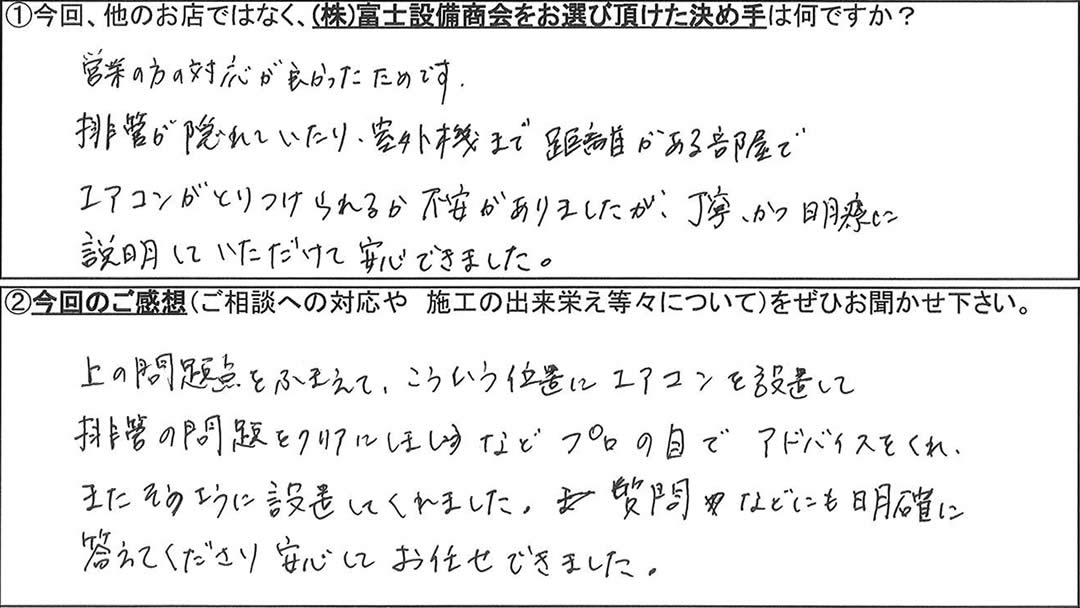 ①今回、他のお店ではなく、(株)富士設備商会をお選び頂けた決め手は何ですか?
営業の方の対応が良かったためです.
排管が隠れていたり、室外機まで距離がある部屋で
エアコンがとりつけられるか不安がありましたが、丁寧、かつ明瞭に
説明していただけて安心できました。
②今回のご感想(ご相談への対応や 施工の出来栄え等々について)をぜひお聞かせ下さい。
上の問題点をふまえて、こういう位置にエアコンを設置して
排管の問題をクリアにしましょう などプロの目でアドバイスをくれ、
またそのように設置してくれました。質問などにも明確に
答えてくださり安心してお任せできました。